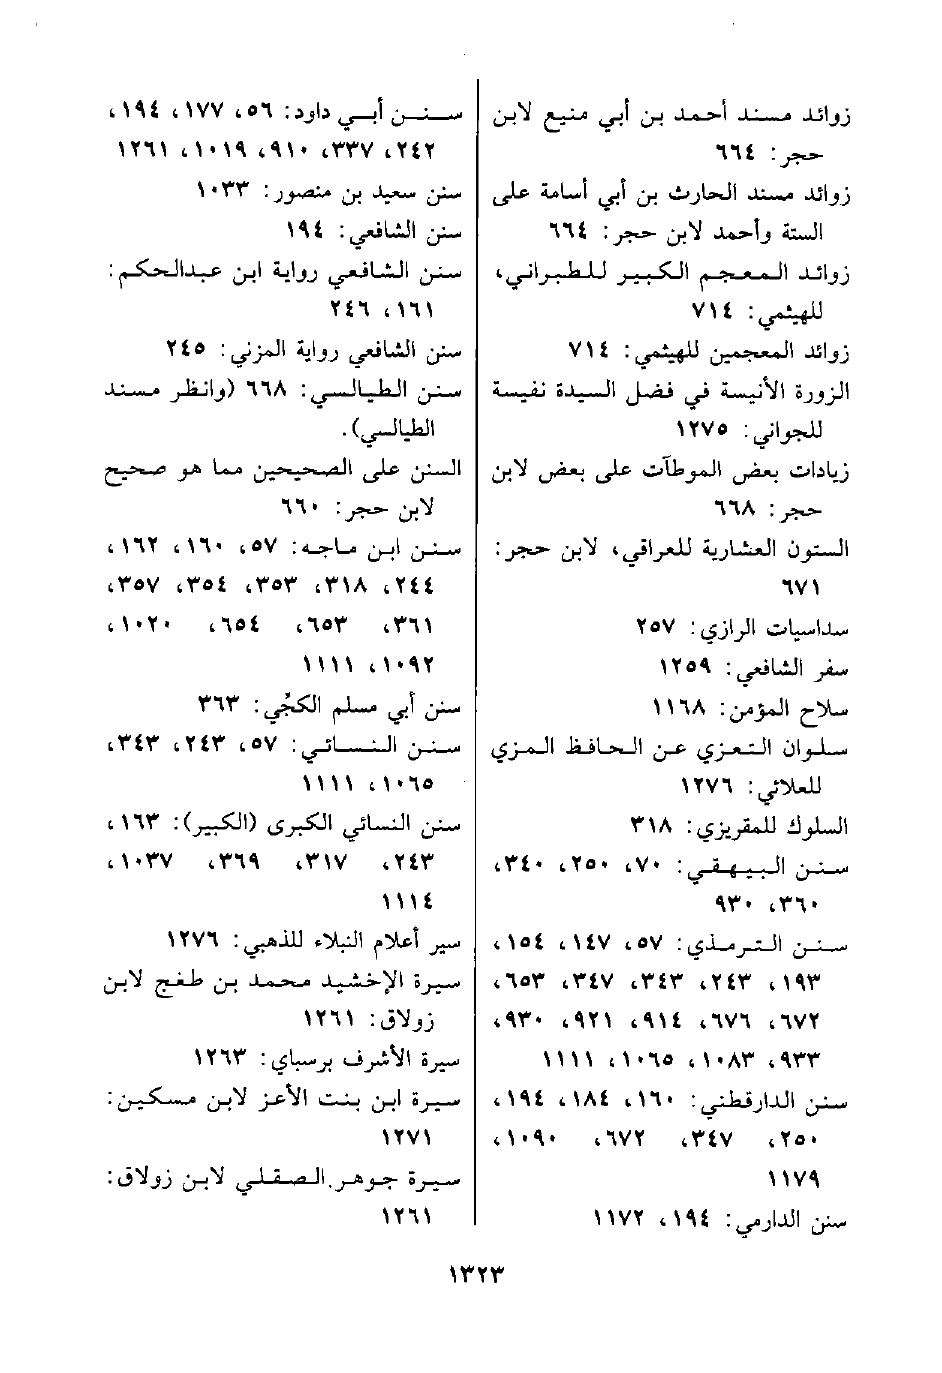 زوائد مسند أحمد بن أبي منيع لابن
حجر: ٦٦٤
زوائد مسند الحارث بن أبي أسامة على
الستة وأحمد لابن حجر: ٦٦٤
زوائد المعجم الكبير للطبراني،
للهيثمي: ٧١٤
زوائد المعجمين للهيثمي: ٧١٤
الزورة الأنيسة في فضل السيدة نفيسة
للجواني: ١٢٧٥
زيادات بعض الموطآت على بعض لابن
حجر: ٦٦٨
الستون العشارية للعراقي، لابن حجر:
٦٧١
سداسيات الرازي: ٢٥٧
سفر الشافعي: ١٢٥٩
سلاح المؤمن: ١١٦٨
سلوان التعزي عن الحافظ المزي
للعلائي: ١٢٧٦
السلوك للمقريزي: ٣١٨
سنن البيهقي: ٧٠، ٢٥٠، ٣٤٠،
٣٦٠، ٩٣٠
سنن الترمذي: ٥٧، ١٤٧، ١٥٤،
١٩٣، ٢٤٣، ٣٤٣، ٣٤٧، ٦٥٣،
٦٧٢، ٦٧٦، ٩١٤، ٩٢١، ٩٣٠،
٩٣٣، ١٠٨٣، ١٠٦٥، ١١١١
سنن الدارقطني: ١٦٠، ١٨٤، ١٩٤،
٢٥٠، ٣٤٧، ٦٧٢، ١٠٩٠،
١١٧٩
سنن الدارمي: ١٩٤، ١١٧٢
سنن أبي داود: ٥٦، ١٧٧، ١٩٤،
٢٤٢، ٣٣٧، ٩١٠، ١٠١٩، ١٢٦١
سنن سعيد بن منصور: ١٠٣٣
سنن الشافعي: ١٩٤
سنن الشافعي رواية ابن عبدالحكم:
١٦١، ٢٤٦
سنن الشافعي رواية المزني: ٢٤٥
سنن الطيالسي: ٦٦٨ (وانظر مسند
الطيالسي).
السنن على الصحيحين مما هو صحيح
لابن حجر: ٦٦٠
سنن ابن ماجه: ٥٧، ١٦٠، ١٦٢،
٢٤٤، ٣١٨، ٣٥٣، ٣٥٤، ٣٥٧،
٣٦١، ٦٥٣، ٦٥٤، ١٠٢٠،
١٠٩٢، ١١١١
سنن أبي مسلم الكجّي: ٣٦٣
سنن النسائي: ٥٧، ٢٤٣، ٣٤٣،
١٠٦٥، ١١١١
سنن النسائي الكبرى (الكبير): ١٦٣،
٢٤٣، ٣١٧، ٣٦٩، ١٠٣٧،
١١١٤
سير أعلام النبلاء للذهبي: ١٢٧٦
سيرة الإخشيد محمد بن طغج لابن
زولاق: ١٢٦١
سيرة الأشرف برسباي: ١٢٦٣
سيرة ابن بنت الأعز لابن مسكين:
١٢٧١
سيرة جوهر الصقلي لابن زولاق:
١٢٦١
١٣٢٣